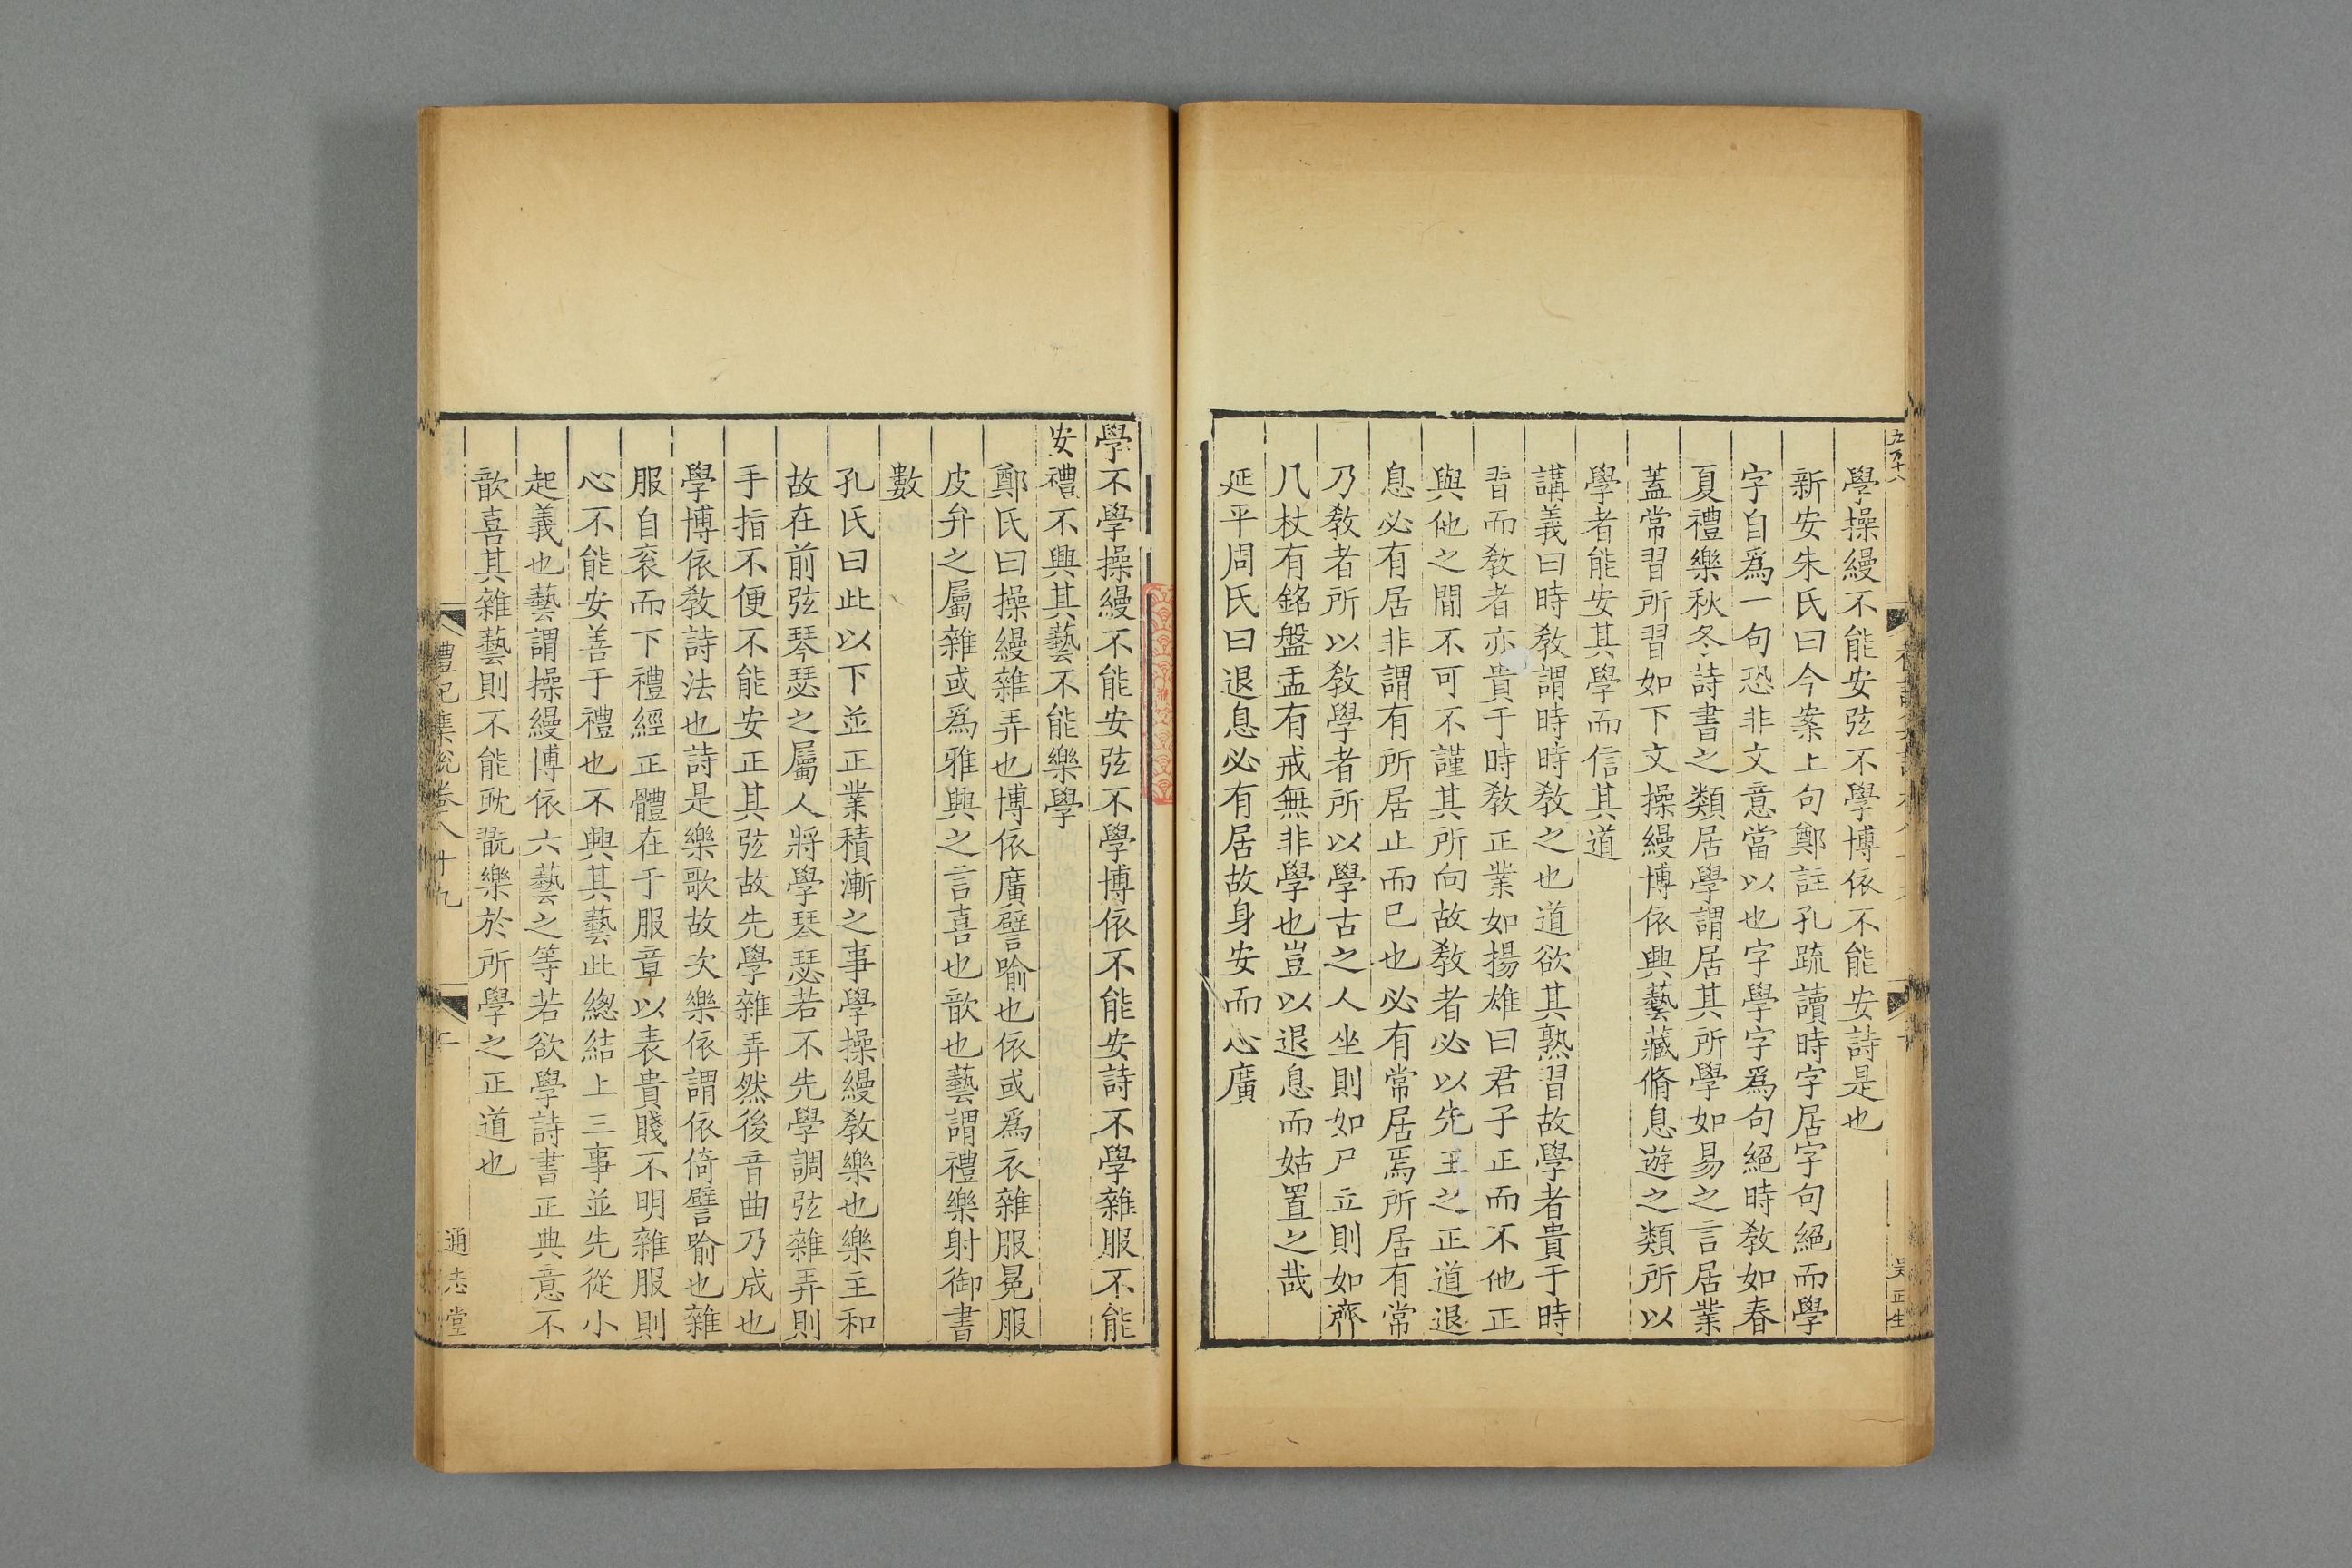 學操縵不能安弦不學博依不能安詩是也
新安朱氏曰今案上句鄭註孔䟽讀時字居字句絕而學
字自爲一句恐非文意當以也字學字爲句絕時敎如春
夏禮樂秋冬詩書之類居學謂居其所學如易之言居業
蓋常習所習如下文操縵博依興藝藏脩息遊之類所以
學者能安其學而信其道
講義曰時敎謂時時敎之也道欲其熟習故學者貴于時
習而敎者亦貴于時敎正業如揚雄曰君子正而不他正
與他之間不可不謹其所向故敎者必以先王之正道退
息必有居非謂有所居止而已也必有常居焉所居有常
乃敎者所以敎學者所以學古之人坐則如尸立則如齊
几杖有銘盤盂有戒無非學也豈以退息而姑置之哉
延平周氏曰退息必有居故身安而心廣
學不學操縵不能安弦不學博依不能安詩不學雜服不能
安禮不興其藝不能樂學
鄭氏曰操縵雜弄也博依廣譬喻也依或爲衣雜服冕服
皮弁之屬雜或爲雅興之言喜也歆也藝謂禮樂射御書
數
孔氏曰此以下並正業積漸之事學操縵敎樂也樂主和
故在前弦琴瑟之屬人將學琴瑟若不先學調弦雜弄則
手指不便不能安正其弦故先學雜弄然後音曲乃成也
學博依敎詩法也詩是樂歌故次樂依謂依倚譬喻也雜
服自衮而下禮經正體在于服章以表貴賤不明雜服則
心不能安善于禮也不興其藝此緫結上三事並先從小
起義也藝謂操縵博依六藝之等若欲學詩書正典意不
歆喜其雜藝則不能耽翫樂於所學之正道也
禮記集說卷八十九
通志堂